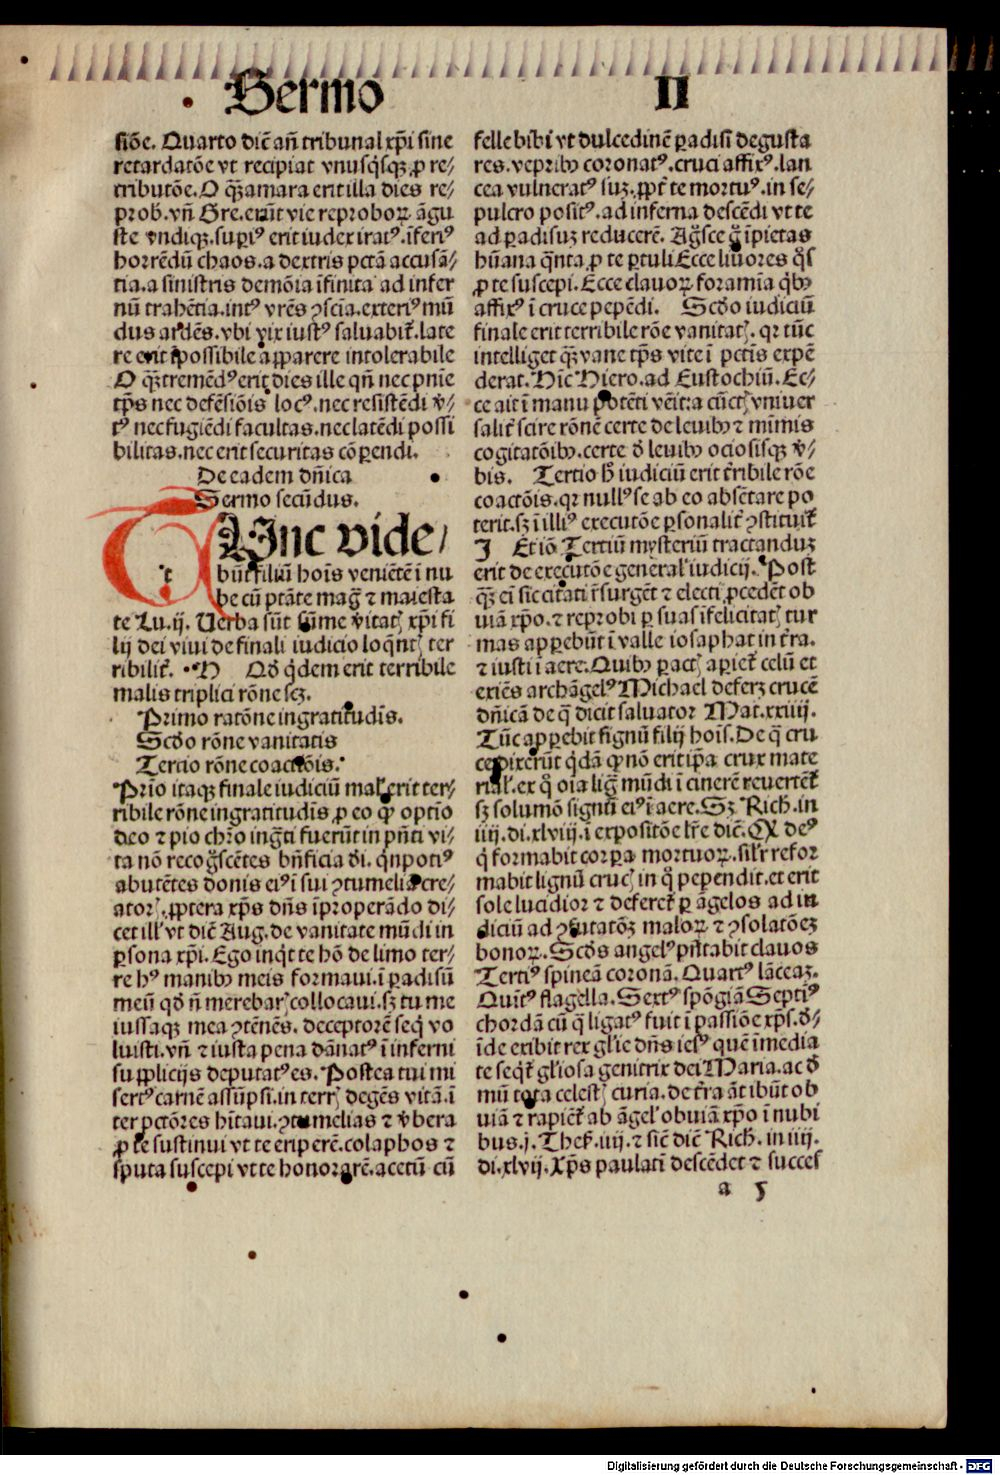 Sermo II
siōe. Quarto dic̄ an̄ tribunal xp̄i sine
retardatōe vt recipiat vnusq̄sqꝫ ꝓ re⸗
tributōe. O qꝫ̄ amara erit illa dies re⸗
prob. vn̄ Gre. erūt vie reproboꝝ āgu
ste vndiqꝫ. suꝑiꝰ erit iudex iratꝰ. īferiꝰ
horrēdū chaos. a dextris pctā accusā⸗
tia. a sinistris demōia īfinita ad infer
nū trahētia. intꝰ vrēs ꝯscīa. exteriꝰ mū
dus ardēs. vbi vix iustꝰ saluabit̄. late
re erit īpossibile apparere intolerabile
O qꝫ̄ tremēdꝰ erit dies ille qn̄ nec pn̄ie
tp̄s nec defēsiōis locꝰ. nec resistēdi v̄⸗
tꝰ nec fugiēdi facultas. nec latēdi possi
bilitas. nec erit securitas cōperendi.
De eadem dn̄ica
Sermo secūdus.
TUnc vide⸗
būt filiū hoīs veniētē ī nu
be cū ptāte maḡ ⁊ maiesta
te Lu. ij. Verba sūt sūme v̄itatꝭ xp̄i fi
lij dei viui de finali iudicio loq̄ntꝭ ter
ribilit̄. N Qd̄ q̄dem erit terribile
malis triplici rōne scꝫ.
Primo ratōne ingratitudīs.
Scd̄o rōne vanitatis
Tercio rōne coactōis.
Prīo itaqꝫ finale iudiciū mal̄ erit ter⸗
ribile rōne ingratitudīs ꝓ eo ꝙ optīo
deo ⁊ pio chr̄o inḡti fuerūt in pn̄ti vi⸗
ta nō recoḡscētes bn̄ficia dī. q̄npotiꝰ
abutētes donis eiꝰ ī sui ꝯtumeliā cre⸗
atorꝭ. ꝓptera xp̄s dn̄s īproperādo di⸗
cet ill̄ vt dic̄ Aug. de vanitate mūdi in
ꝑsona xp̄i. Ego inq̄t te hōē de limo ter⸗
re hꝰ manibꝰ meis formaui. ī ꝑadisū
meū qd̄ n̄ merebarꝭ collocaui. sꝫ tu me
iussaqꝫ mea ꝯtēnēs. deceptorē seq̄ vo
luisti. vn̄ ⁊ iusta pena dānatꝰ ī inferni
supplicijs deputatꝰ es. Postea tui mi
sertꝰ carnē assūpsi. in terrꝭ degēs vitā. ī
ter pctōres hītaui. ꝯtumelias ⁊ v̄bera
ꝓ te sustinui vt te eriperē. colaphos ⁊
sputa suscepi vt te honorarē. acetū cū
felle bibī vt dulcedinē ꝑadisi degusta
res. vepribꝰ coronatꝰ. cruci affixꝰ. lan
cea vulneratꝰ suꝫ. ꝓpt̄ te mortuꝰ. in se⸗
pulcro positꝰ. ad inferna descēdi vt te
ad ꝑadisuꝫ reducerē. Aḡsce ḡ īpietas
hūana q̄nta ꝓ te ꝑtuli Ecce liuores q̄s
ꝓ te suscepi. Ecce clauoꝝ foramīa q̄bꝰ
affixꝰ ī cruce pepēdi. Scd̄o iudiciū
finale erit terribile rōe vanitatꝭ. qꝛ tūc
intelliget qꝫ̄ vane tp̄s vite ī pctīs expē
derat. Hīc Hiero. ad Eustochiū. Ec⸗
ce ait ī manu potēti vēit: a cūctꝭ vniuer
salit̄ scire rōnē certe de leuibꝰ ⁊ mīmis
cogitatōibꝰ. certe d̄ leuibꝰ ociosisqꝫ v̄⸗
bis. Tertio h̄ iudiciū erit t̄ribile rōe
coactōis. qꝛ nullꝰ se ab eo absētare po
terit. sꝫ ī illiꝰ executōe ꝑsonalit̄ ꝯstituit̄
I Et iō Tertiū mysteriū tractanduꝫ
erit de executōe general̄ iudicij. Post
qꝫ̄ ei̅ sic citati r̄surgēt ⁊ electi ꝓcedēt ob
uiā xp̄o. ⁊ reprobi ꝑ suas īfelicitatꝭ tur
mas apperebūt ī valle iosaphat in t̄ra.
⁊ iusti ī aere. Quibꝰ ꝑactꝭ apiet̄ celū et
exiēs archāgelꝰ Michael deferꝫ crucē
dn̄icā de q̄ dicit saluator Mat. xxiiij.
Tūc apperebit signū filij hoīs. De q̄ cru
ce dixerūt q̄dā ꝙ nō erit ip̄a crux mate
rial̄. ex q̄ oīa liḡ mūdi ī cinerē reuertēt̄
sꝫ solumō signū eiꝰ ī aere. Sꝫ Rich. in
iiij. di. xlviij. ī expositōe lr̄e dic̄. Q deꝰ
q̄ formabit corꝑa mortuoꝝ. sil̄r refor
mabit lignū crucꝭ in q̄ pependit. et erit
sole lucidior ⁊ deferet̄ ꝑ āgelos ad iu
diciū ad ꝯfutatōꝫ maloꝝ ⁊ ꝯsolatōeꝫ
bonoꝝ. Scd̄s angelꝰ pn̄tabit clauos
Tertiꝰ spineā coronā. Quartꝰ lāceaꝫ.
Quītꝰ flagella. Sextꝰ spōgiā Septiꝰ
chordā cū q̄ ligatꝰ fuit ī passiōe xp̄s. d̄⸗
īde exibit rex gl̄ie dn̄s iesꝰ quē īmedia
te seq̄t̄ gl̄iosa genitrix dei Maria. ac d̄
mū tota celestꝭ curia. de t̄ra āt ibūt ob
uiā ⁊ rapiēt̄ ab āgel̄ obuiā xp̄o ī nubi
bus. j. Thes. iiij. ⁊ sic̄ dic̄ Rich. in iiij.
di. xlvij. Xp̄s paulatī descēdet ⁊ succes
a 5
Digitalisierung gefördert durch die Deutsche Forschungsgemeinschaft - DFG